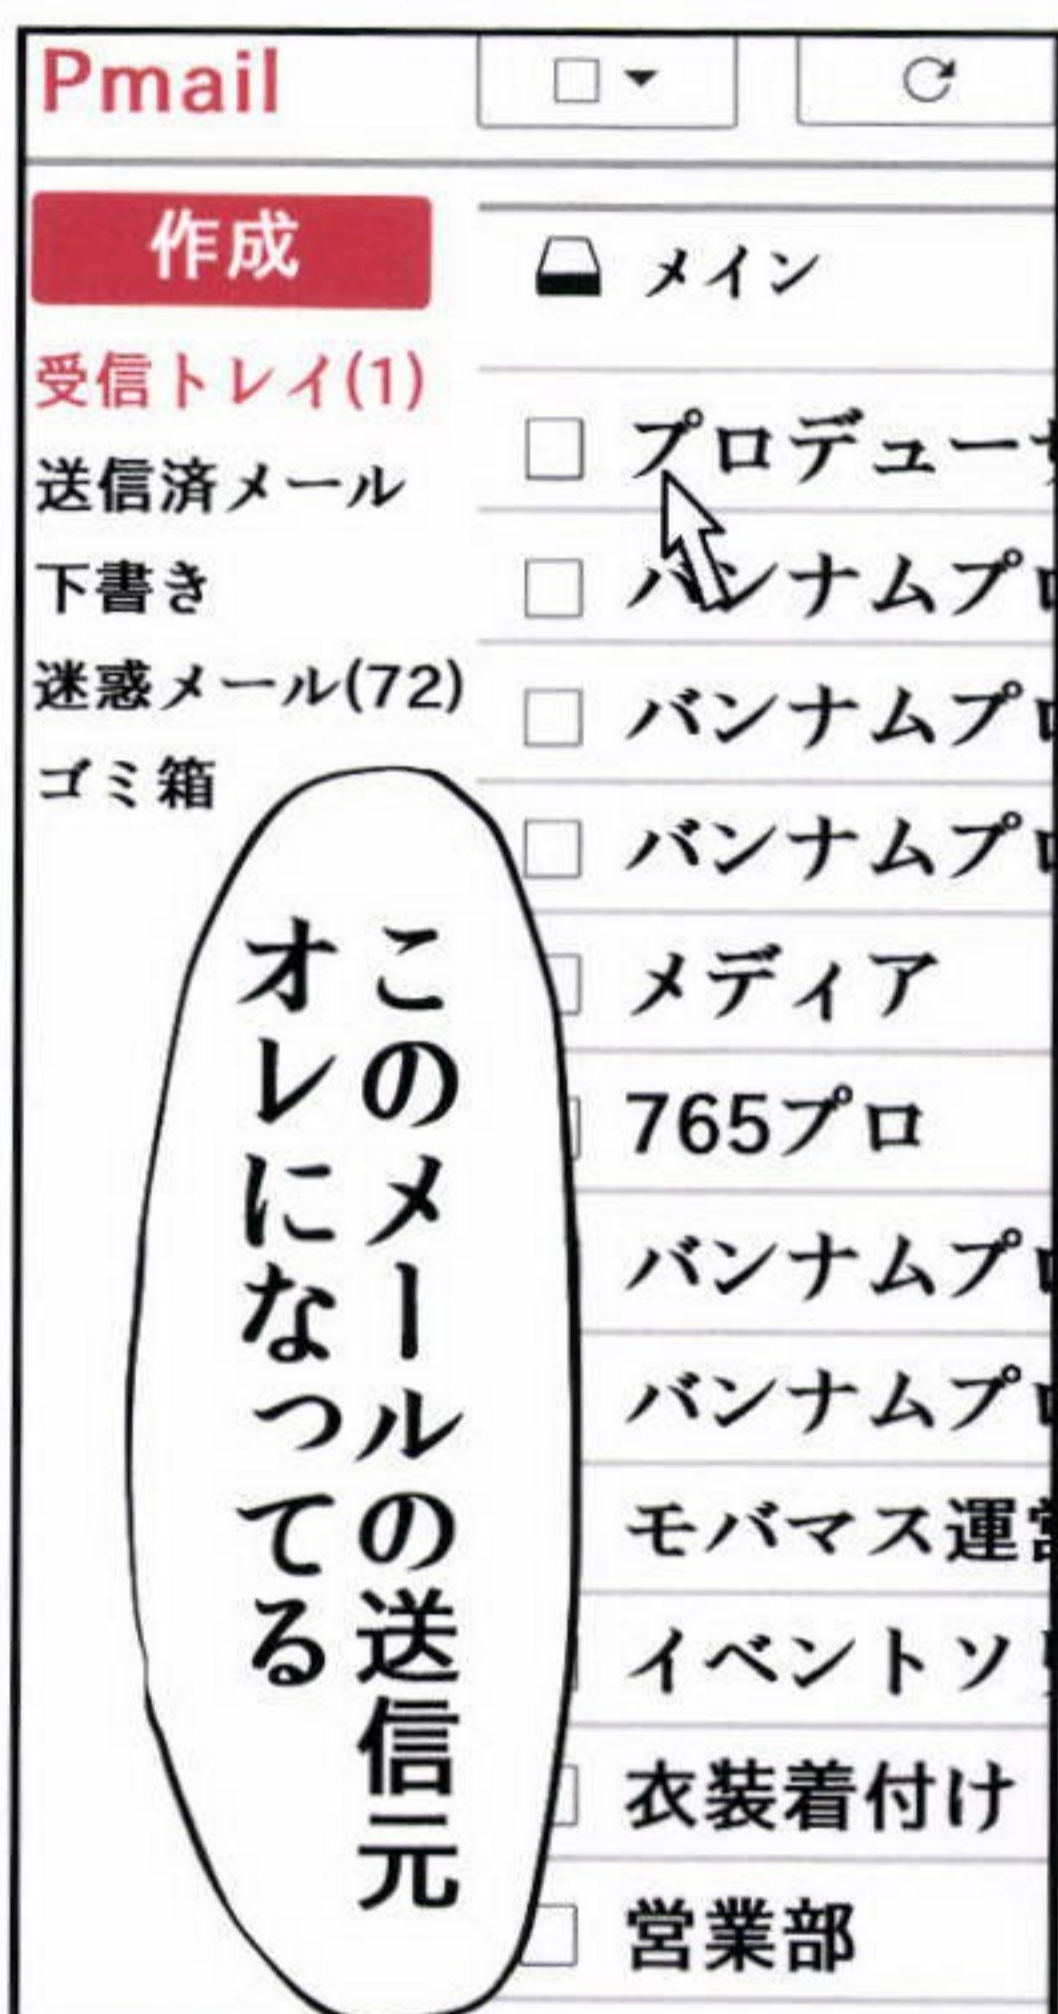 Pmail
作成
受信トレイ(1)
送信済メール
下書き
迷惑メール(72)
ゴミ箱
メイン
プロデューサ
バンナムプロ
バンナムプロ
バンナムプロ
メディア
765プロ
バンナムプロ
バンナムプロ
モバマス運営
イベントソリ
衣装着付け
営業部
このメールの送信元
オレになってる